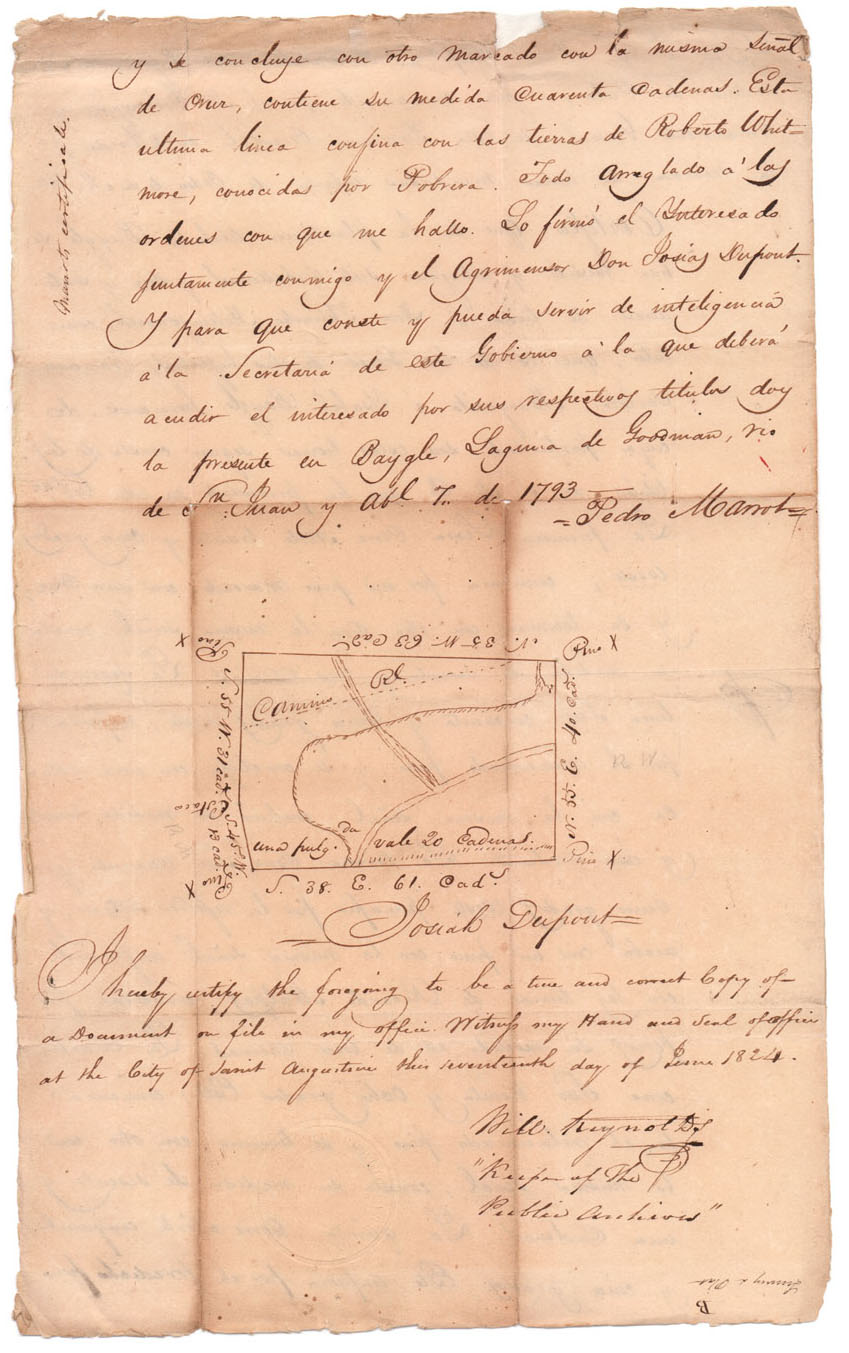 y se concluye con otro marcado con la misma señal
de Cruz, contiene su medida Cuarenta Cadenas. Esta
ultima linea confina con las tierras de Roberto Whit=
more, conocidas por Pobrera. Todo arreglado á las
ordenes con que me hallo. Lo firmó el Ynteresado
juntamente conmigo y el Agrimensor Don Josias Dupont.
Y para que conste y pueda servir de inteligencia
á la Secretaria de este Gobierno á la que deberá
acudir el interesado por sus respectivos titulos doy
la presente en Baygle, Laguna de Goodman, rio
de Sn. Juan y Abl. 7. de 1793
=Pedro Marrot=
Marrot's certificate.
N. 35 W. 63 Cads.
Pino X
Pino X
S. 55 W. 31 cads.
Camino Rl.
N. 55. E. 40. Cads.
Estaca
S. 45 W.
13 cads.
una pulgda. vale 20 cadenas.
Pino X
Pino X
S. 38. E. 61. Cads.
=Josiah Dupont=
I hereby certify the foregoing to be a true and correct Copy of
a Document on file in my office. Witness my Hand and Seal of office
at the City of Saint Augustine this seventeenth day of June 1824.
Will. Reynolds
"Keeper of The
Public Archives"
B